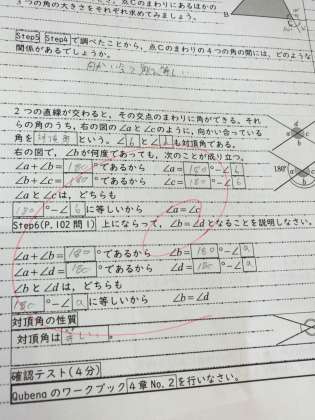 3つの角の大きさをそれぞれ求めてみましょう。
B
Step5 Step4で調べたことから、点Cのまわりの4つの角の間には、どのような
関係があるでしょうか。
向かいあう角は等しい
2つの直線が交わると、その交点のまわりに角ができる。それ
らの角のうち、右の図の∠aと∠cのように、向かい合っている
角を 対頂角 という。∠bと∠dも対頂角である。
右の図で、∠bが何度であっても、次のことが成り立つ。
∠a+∠b=180°であるから ∠a=180°-∠b
∠b+∠c=180°であるから ∠c=180°-∠b
∠aと∠cは、どちらも
180°-∠bに等しいから ∠a=∠c
Step6(P.102問1) 上にならって、∠b=∠dとなることを説明しなさい。
∠a+∠b=180°であるから ∠b=180°-∠a
∠a+∠d=180°であるから ∠d=180°-∠a
∠bと∠dは、どちらも
180°-∠aに等しいから ∠b=∠d
対頂角の性質
対頂角は等しい。
確認テスト(4分)
Qubenaのワークブック 4章No.2 を行いなさい。
d
a
c
b
180°
a
c
b